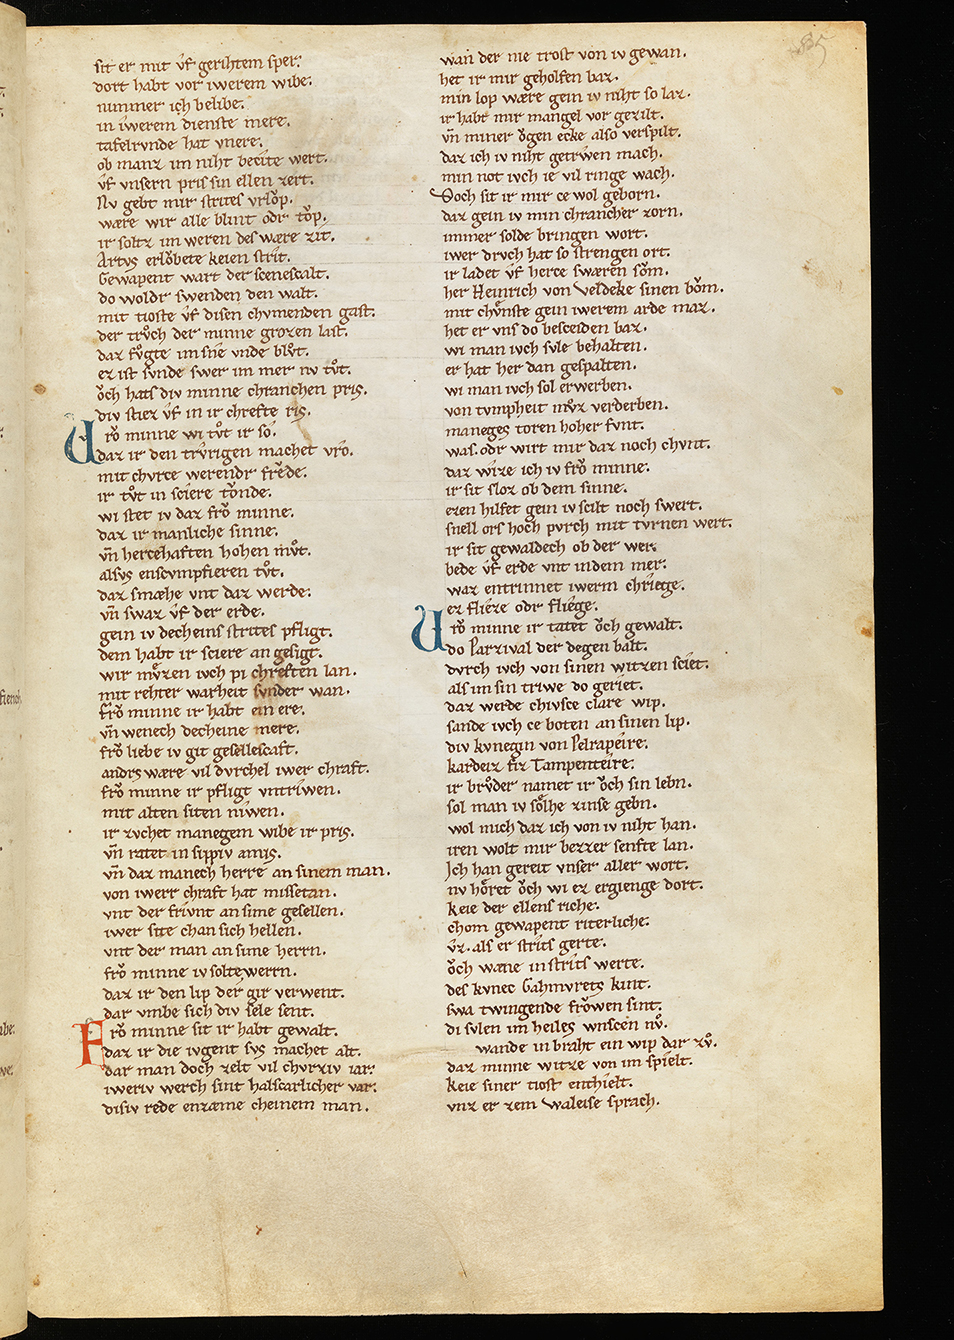 sit er mit vf gerihtem sper.
dort habt vor iwerem wibe.
nimmer ich belibe.
in iwerem dienste mere.
tafelrvnde hat vnere.
ob manz im niht becite wert.
vf vnsern pris sin ellen zert.
Nv gebt mir strites vrlop.
wære wir alle blint odr top.
ir soltz im weren des wære zit.
Artvs erlobete keien strit.
Gewapent wart der scenescalt.
do woldr swenden den walt.
mit tioste vf disen chvmenden gast.
der truoch der minne grozen last.
daz fuogte im sne vnde bluot.
ez ist svnde swer im mer nv tuot.
och hats div minne chranchen pris.
div stiez vf in ir chrefte ris.
Vro minne wi tuot ir so.
daz ir den trvrigen machet vro.
mit chvrce werendr frede.
ir tuot in sciere tonde.
wi stet iv daz fro minne.
daz ir manliche sinne.
vn̄ hercehaften hohen muot.
alsvs enscvmpfieren tuot.
daz smæhe vnt daz werde.
vn̄ swaz vf der erde.
gein iv decheins strites pfligt.
dem habt ir sciere an gesigt.
wir mvͦzen ivch pi chreften lan.
mit rehter warheit svnder wan.
fro minne ir habt ein ere.
vn̄ wenech decheine mere.
fro liebe iv git gesellescaft.
andrs wære vil dvrchel iwer chraft.
fro minne ir pfligt vntriwen.
mit alten siten niwen.
ir zvchet manegem wibe ir pris.
vn̄ ratet in sippiv amis.
vn̄ daz manech herre an sinem man.
von iwerr chraft hat missetan.
vnt der frivnt an sime gesellen.
iwer site chan sich hellen.
vnt der man an sime herrn.
fro minne iv solte werrn.
daz ir den lip der gir verwent.
dar vmbe sich div sele sent.
Fro minne sit ir habt gewalt.
daz ir die ivgent svs machet alt.
dar man doch zelt vil chvrziv iar.
iweriv werch sint halscarlicher var.
disiv rede enzæme cheinem man.
wan der nie trost von iv gewan.
het ir mir geholfen baz.
min lop wære gein iv niht so laz.
ir habt mir mangel vor gezilt.
vn̄ miner ogen ecke also verspilt.
daz ich iv niht getrwen mach.
min not ivch ie vil ringe wach.
Doch sit ir mir ce wol geborn.
daz gein iv min chrancher zorn.
immer solde bringen wort.
iwer drvch hat so strengen ort.
ir ladet vf herce swæren som.
her Heinrich von Veldeke sinen bom.
mit chvnste gein iwerem arde maz.
het er vns do besceiden baz.
wi man ivch svle behalten.
er hat her dan gespalten.
wi man ivch sol erwerben.
von tvmpheit mvͦz verderben.
maneges toren hoher fvnt.
was. odr wirt mir daz noch chvnt.
daz wize ich iv fro minne.
ir sit sloz ob dem sinne.
ezen hilfet gein iv scilt noch swert.
snell ors hoch pvrch mit tvrnen wert.
ir sit gewaldech ob der wer.
bede vf erde vnt in dem mer.
waz entrinnet iwerm chriege.
ez flieze odr fliege.
Vro minne ir tatet och gewalt.
do Parzival der degen balt.
dvrch ivch von sinen witzen sciet.
als im sin triwe do geriet.
daz werde chivsce clare wip.
sande ivch ce boten an sinen lip.
div kvnegin von Pelrapeire.
kardeiz fiz Tampenteire.
ir bruoder namet ir och sin lebn.
sol man iv solhe zinse gebn.
wol mich daz ich von iv niht han.
iren wolt mir bezzer senfte lan.
Ich han gereit vnser aller wort.
nv horet och wi ez ergienge dort.
keie der ellens riche.
chom gewapent riterliche.
vz. als er strits gerte.
och wæne in strits werte.
des kvnec Gahmvrets kint.
swa twingende frowen sint.
di svlen im heiles wnscen nuo.
wande in braht ein wip dar zuo.
daz minne witze von im spielt.
keie siner tiost enthielt.
vnz er zem waleise sprach.